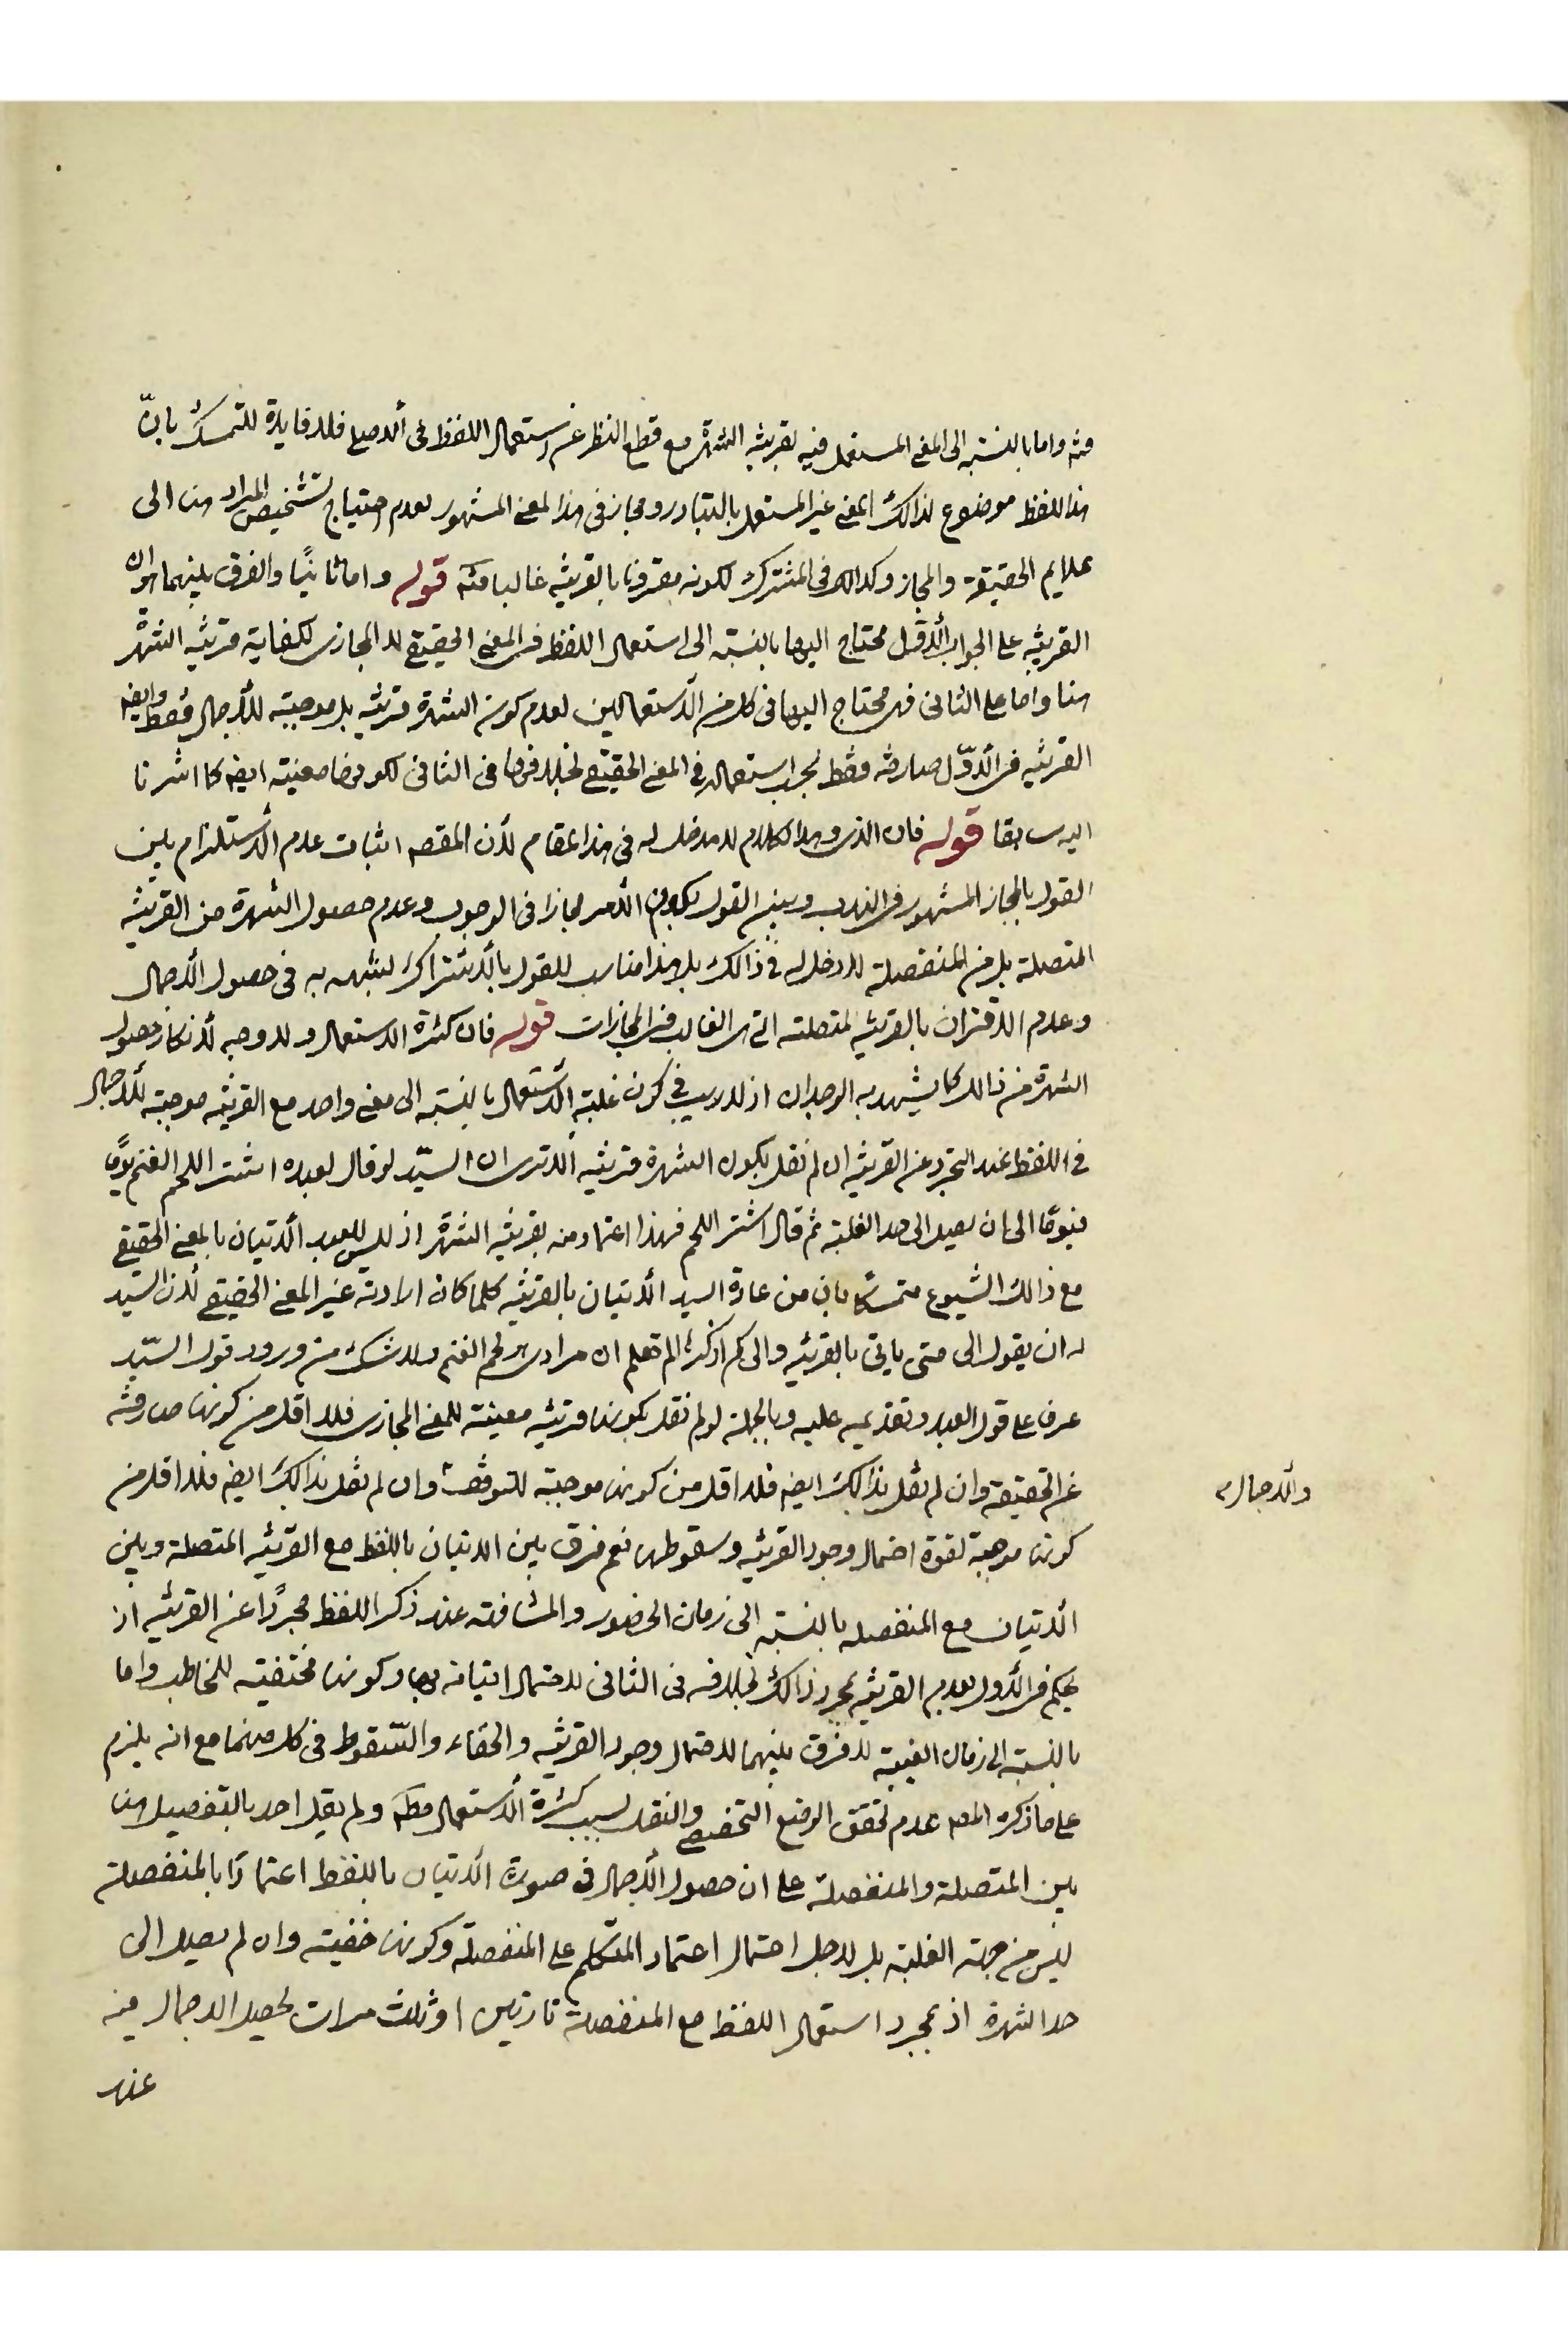 منه واما بالنسبة الى المعنى المستعمل فيه بقرينة الشهرة مع قطع النظر عن استعمال اللفظ في الاصلي فلا فايدة للتمسك بانّ
هذا اللفظ موضوع لذالك المعنى غير المستعمل بالتبادر ومجاز فى هذا لمعنى المشهور لعدم احتياج تشخيص المراد هنا الى
علايم الحقيقة والمجاز وكذالك فى المشترك لكونه مقرونا بالقرينة غالبا منه قوله واما ثانيًا والفرق بينهما ان
القرينة على الجواب الاوّل محتاج اليها بالنسبة الى استعمال اللفظ فى المعنى الحقيقي لا المجازى لكفاية قرينة الشهرة
هنا واما على الثانى فهى محتاج اليها فى كل من الاستعمالين لعدم كون الشهرة قرينة بل موجبة للاجمال فقط وايضه
القرينة فى الاوّل صارفة فقط لجواب استعماله فى المعنى الحقيقي بخلافها فى الثانى لكونها معنية ايضه كما اشرنا
اليه سابقا قوله فان الذى وهذا الكلام لا مدخل له فى هذا المقام لأن المقصه اثبات عدم الاستلزام بين
القول بالمجاز المشهور فى الندب وبين القول بكون الأمر مجازا فى الوجوب وعدم حصول الشهرة من القرينة
المتصلة بل من المنفصلة لا دخل له فى ذالك بل هذا مناسب للقول بالاشتراك لشبهه به فى حصول الاجمال
وعدم الاقتران بالقرينة لمتصلة التى هى الغالب فى المجازات قوله فان كثرة الاستعمال ولا وجه لانكار حصول
الشهرة من ذالك كما يشهد به الوجدان اذ لا ريب فى كون غلبة الاستعمال بالنسبة الى معنى واحد مع القرينة موجبة للاجمال
فى اللفظ عند التجرد عن القرينة ان لم نقل بكون الشهرة قرينة الا ترى ان السيّد لو قال لعبده اشتر اللحم الغنم يومًا
فيومًا الى ان يصل الى حد الغلبة ثم قال اشتر اللحم فهذا اعتماد منه بقرينة الشهرة اذ ليس للعبد الاتيان بالمعنى الحقيقي
مع ذالك الشيوع متمسكًا بان من عادة السيد الاتيان بالقرينة كلما كان ارادته غير المعنى الحقيقي لان السيد
له ان يقول الى متى ياتى بالقرينة والى كم اذكر الم تعلم ان مرادى هو لحم الغنم ولا شك من ورود قول السيّد
عرف على قول العبد وتقديمه عليه وبالجملة لو لم نقل بكونها قرينة معينة للمعنى المجازى فلا اقل من كونها صارفة
عن الحقيقة وان لم نقل بذالك ايضه فلا اقل من كونها موجبة للتوقف وان لم نقل بذالك ايضه فلا اقل من
والاجمال
كونها موهبة لقوة احتمال وجود القرينة وسقوطها نعم فرق بين الاتيان باللفظ مع القرينة المتصلة وبين
الاتيان مع المنفصلة بالنسبة الى زمان الحضور والمشافهة عند ذكر اللفظ مجردًا عن القرينة اذ
يحكم فى الاول بعدم القرينة بمجرد ذالك بخلافه فى الثانى لاحتمال اتيانه بها وكونها مختفية للمخاطب واما
بالنسبة الى زمان الغيبة لا فرق بينهما لاحتمال وجود القرينة والخفاء والسّقوط فى كل منهما مع انه يلزم
على ما ذكره المصه عدم تحقق الوضع التخصصى والنقل بسبب كثرة الاستعمال مطه ولم يقل احد بالتفصيل هنا
بين المتصلة والمنفصلة على ان حصول الاجمال فى صورة الاتيان باللفظ اعتمادًا بالمنفصلة
ليس من جهة الغلبة بل لاجل احتمال اعتماد المتكلم على المنفصلة وكونها خفية وان لم يصل الى
حد الشهرة اذ بمجرد استعمال اللفظ مع المنفصلة تارتين او ثلث مرات يحصل الاجمال فيه
عند